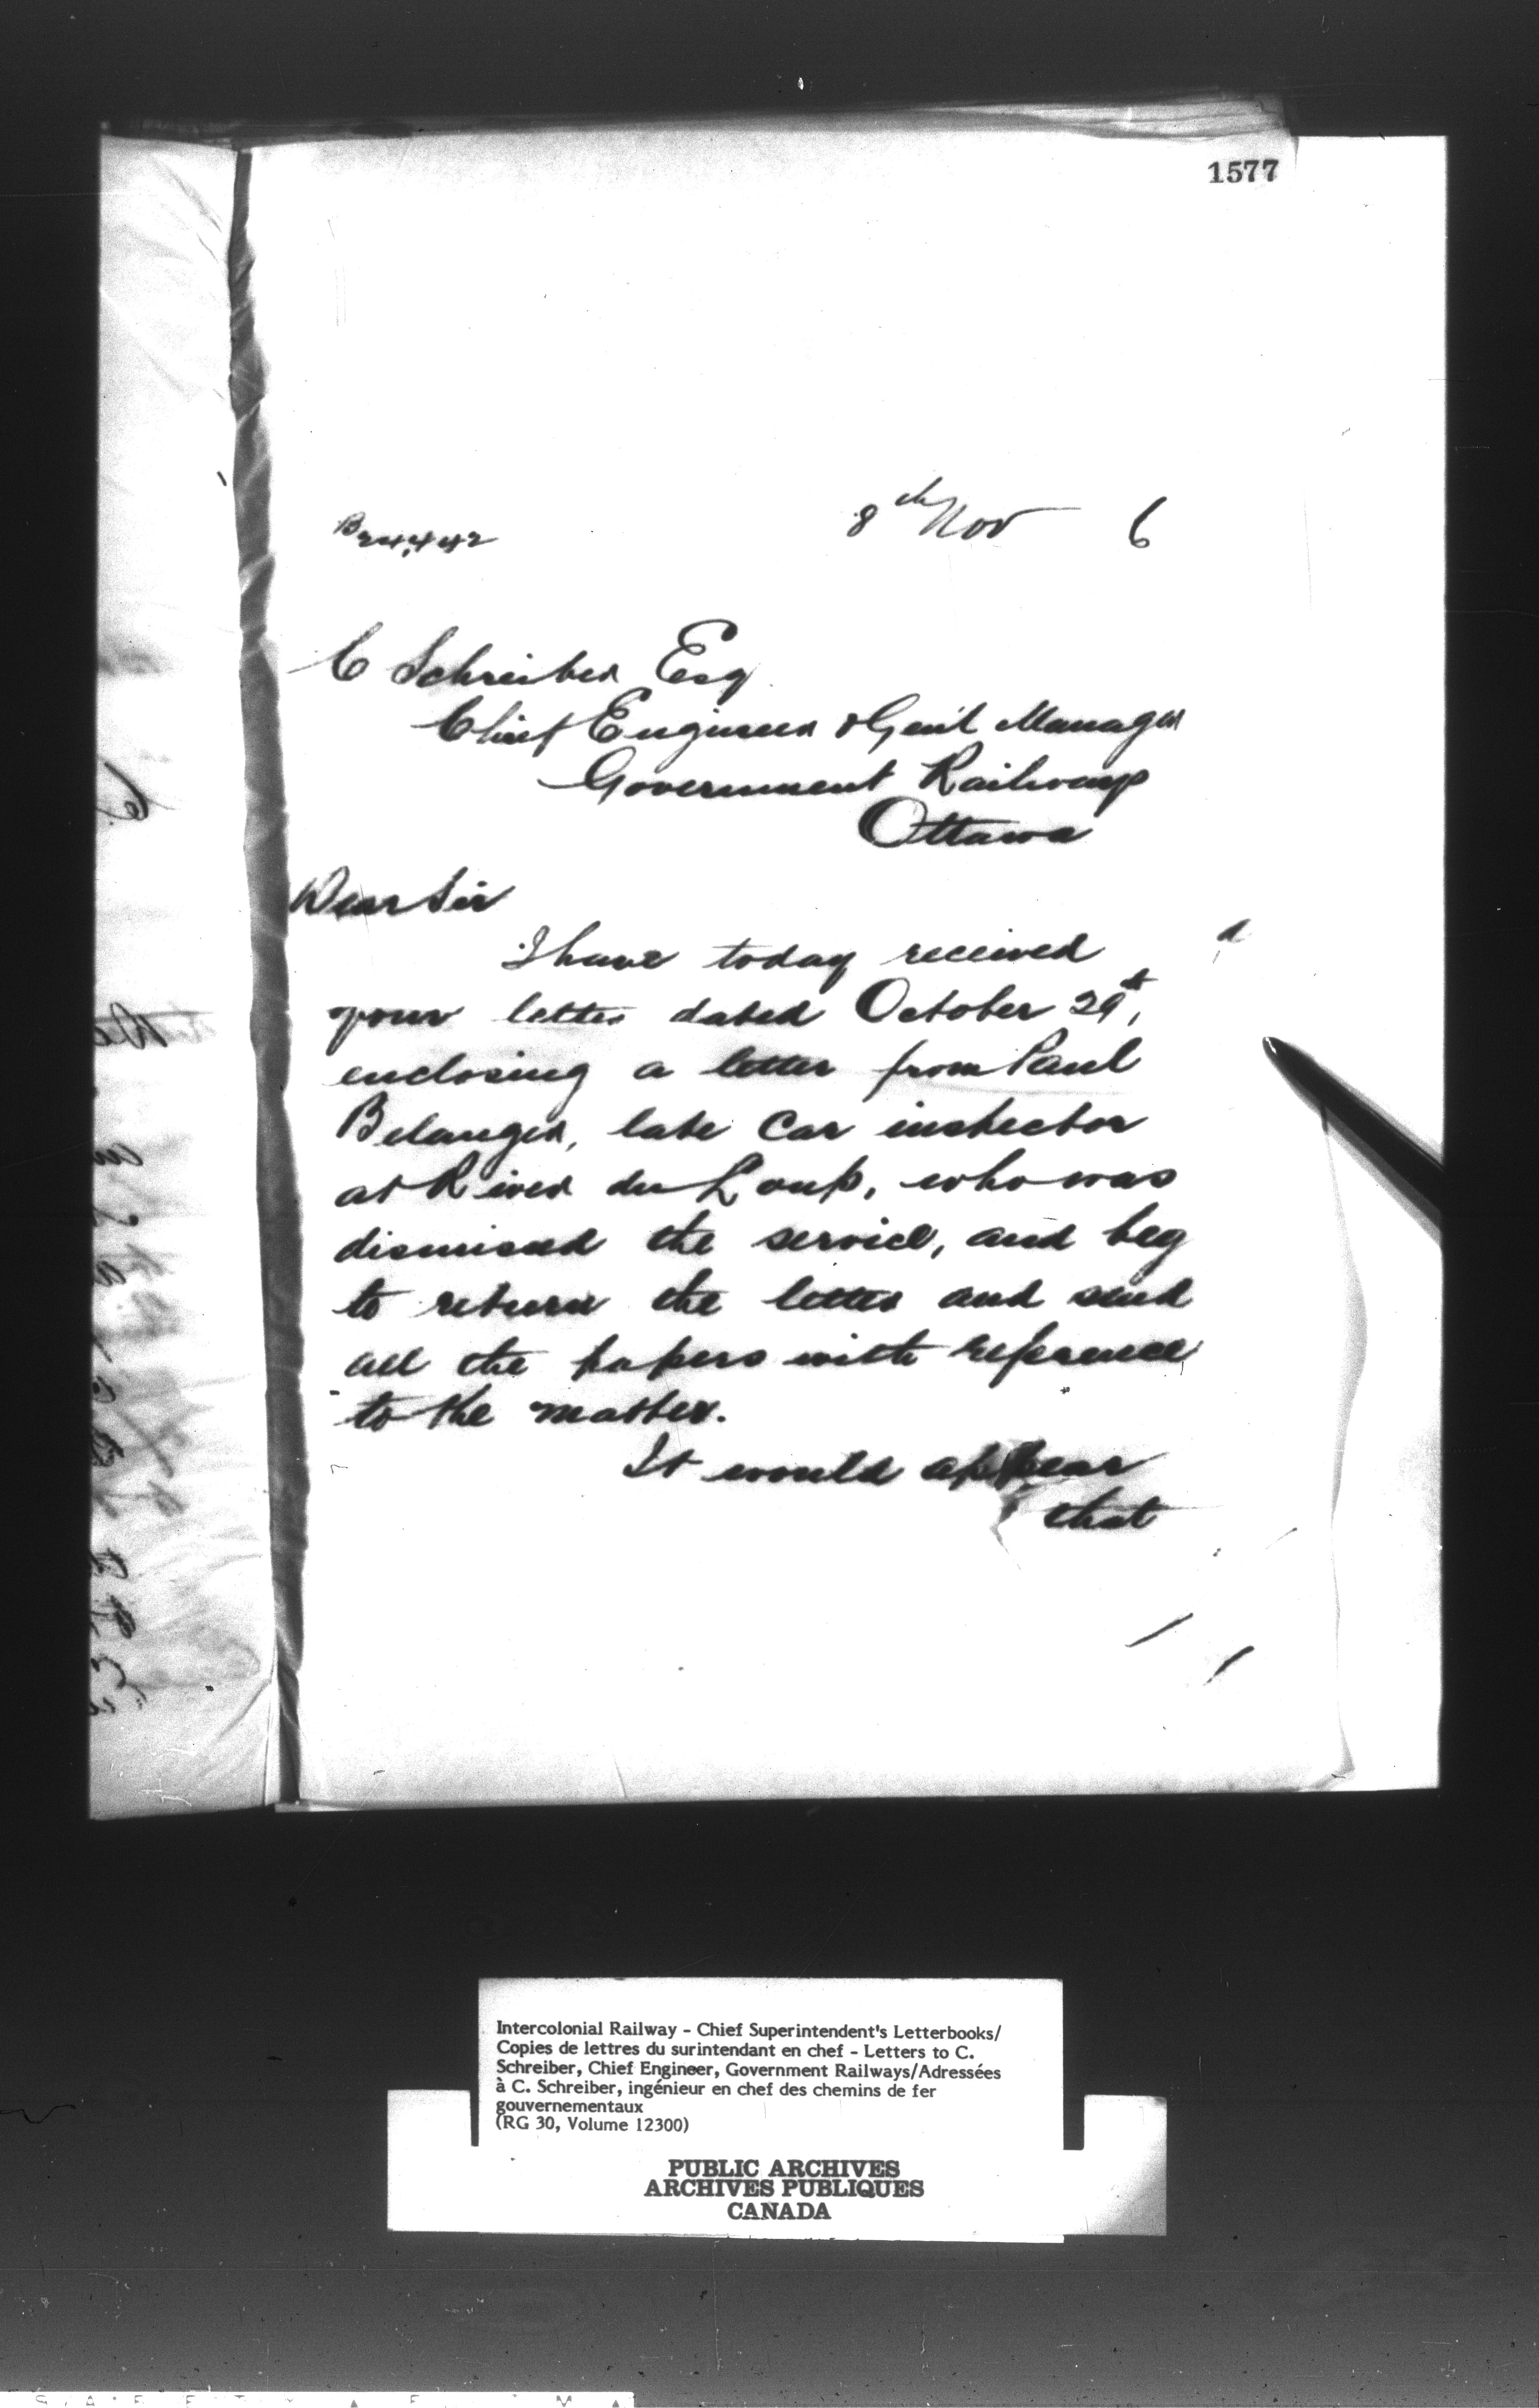 1577
B 24,442
8th Nov 6
C Schreiber Esq
Chief Engineer & Genl Manager
Government Railways
Ottawa
Dear Sir
I have today received
your letter dated October 29th,
enclosing a letter from Paul
Belanger, late Car inspector
at River du Loup, who was
dismissed the service, and beg
to return the letter and send
all the papers with reference
to the matter.
It would appear
that
Intercolonial Railway - Chief Superintendent's Letterbooks/
Copies de lettres du surintendant en chef - Letters to C.
Schreiber, Chief Engineer, Government Railways/Adressées
à C. Schreiber, ingénieur en chef des chemins de fer
gouvernementaux
(RG 30, Volume 12300)
PUBLIC ARCHIVES
ARCHIVES PUBLIQUES
CANADA